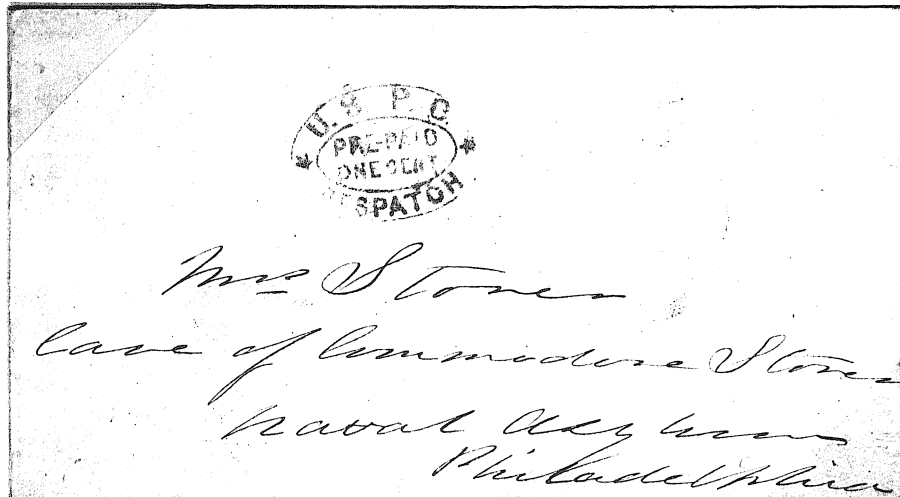 U.S P.O.
PRE-PAID
ONE CENT
DESPATCH
Mrs Storer
Care of Commodore Storer
Naval Asylum
Philadelphia